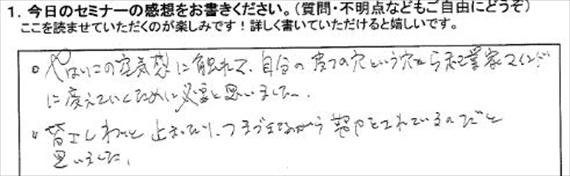 1. 今日のセミナーの感想をお書きください。（質問・不明点などもご自由にどうぞ）
ここを読ませていただくのが楽しみです！詳しく書いていただけると嬉しいです。
。やはりこの空気感に触れて、自分の 穴という穴から 業家マインド
に変えていくために必要と思いました。
。皆エしわっと 止まったり、つまづきながら 努力をされているのだと
思いました。